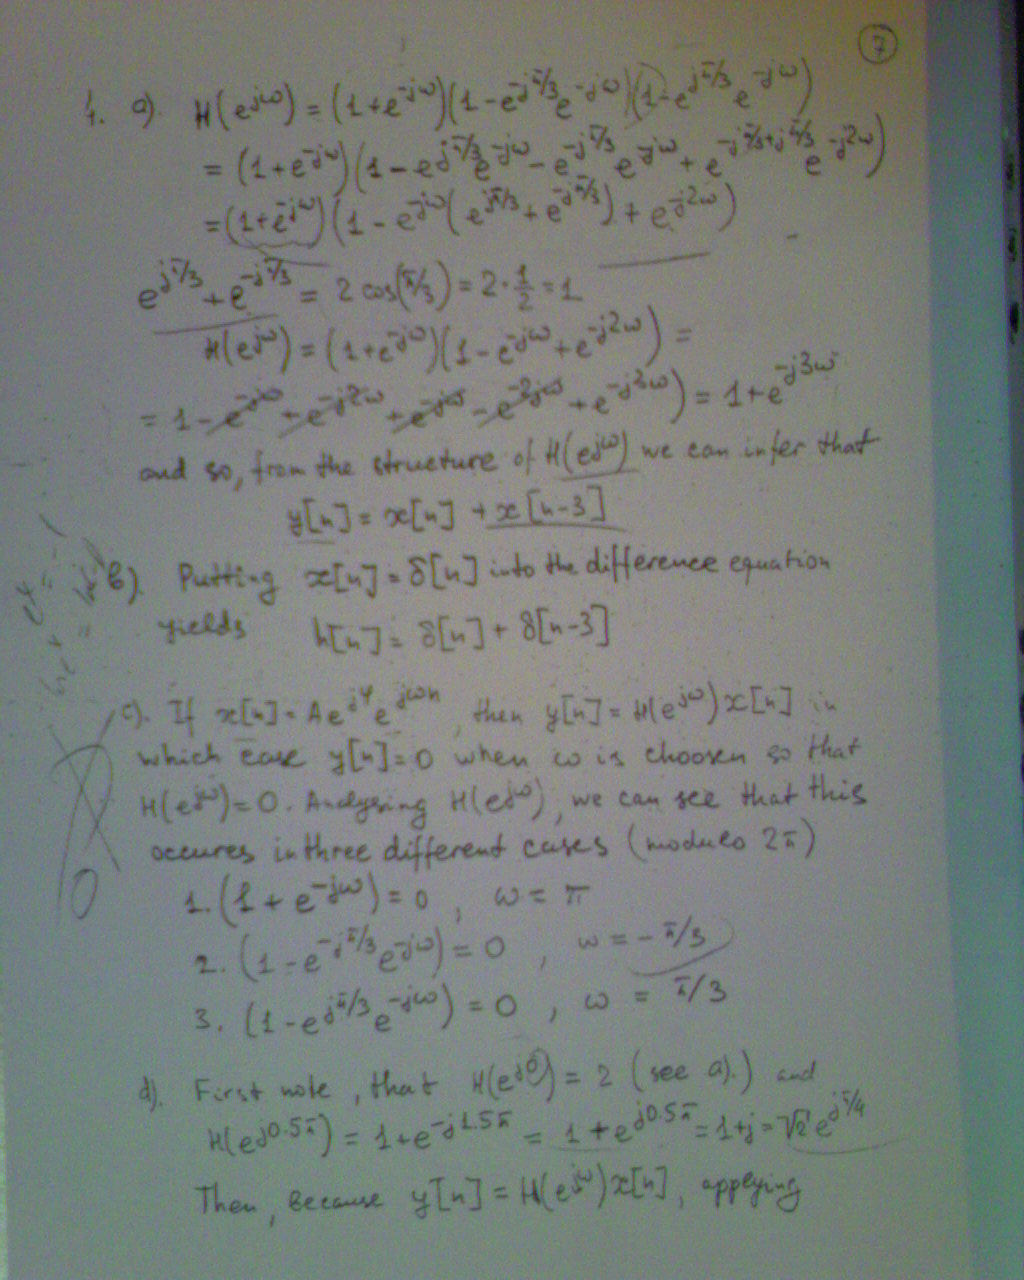 7
1. a). H(e^{jω}) = (1+e^{-jω})(1-e^{-jπ/3}e^{-jω})(1-e^{jπ/3}e^{-jω})
= (1+e^{-jω})(1-e^{jπ/3}e^{-jω}-e^{-jπ/3}e^{-jω}+e^{-jπ/3+jπ/3}e^{-j2ω})
= (1+e^{-jω})(1-e^{-jω}(e^{jπ/3}+e^{-jπ/3})+e^{-j2ω})
e^{jπ/3}+e^{-jπ/3} = 2cos(π/3) = 2·1/2 = 1
H(e^{jω}) = (1+e^{-jω})(1-e^{-jω}+e^{-j2ω}) =
= 1-e^{-jω}+e^{-j2ω}+e^{-jω}-e^{-2jω}+e^{-j3ω}) = 1+e^{-j3ω}
and so, from the structure of H(e^{jω}) we can infer that
y[n] = x[n] + x[n-3]
b). Putting x[n] = δ[n] into the difference equation
yields h[n] = δ[n] + δ[n-3]
c). If x[n] = Ae^{jφ}e^{jωn}, then y[n] = H(e^{jω})x[n] in
which case y[n]=0 when ω is choosen so that
H(e^{jω})=0. Analysing H(e^{jω}), we can see that this
occures in three different cases (modulo 2π)
1. (1+e^{-jω}) = 0, ω = π
2. (1-e^{-jπ/3}e^{-jω}) = 0, ω = -π/3
3. (1-e^{jπ/3}e^{-jω}) = 0, ω = π/3
d). First note, that H(e^{j0}) = 2 (see a).) and
H(e^{j0.5π}) = 1+e^{-j1.5π} = 1+e^{j0.5π} = 1+j = √2 e^{jπ/4}
Then, because y[n] = H(e^{jω})x[n], applying